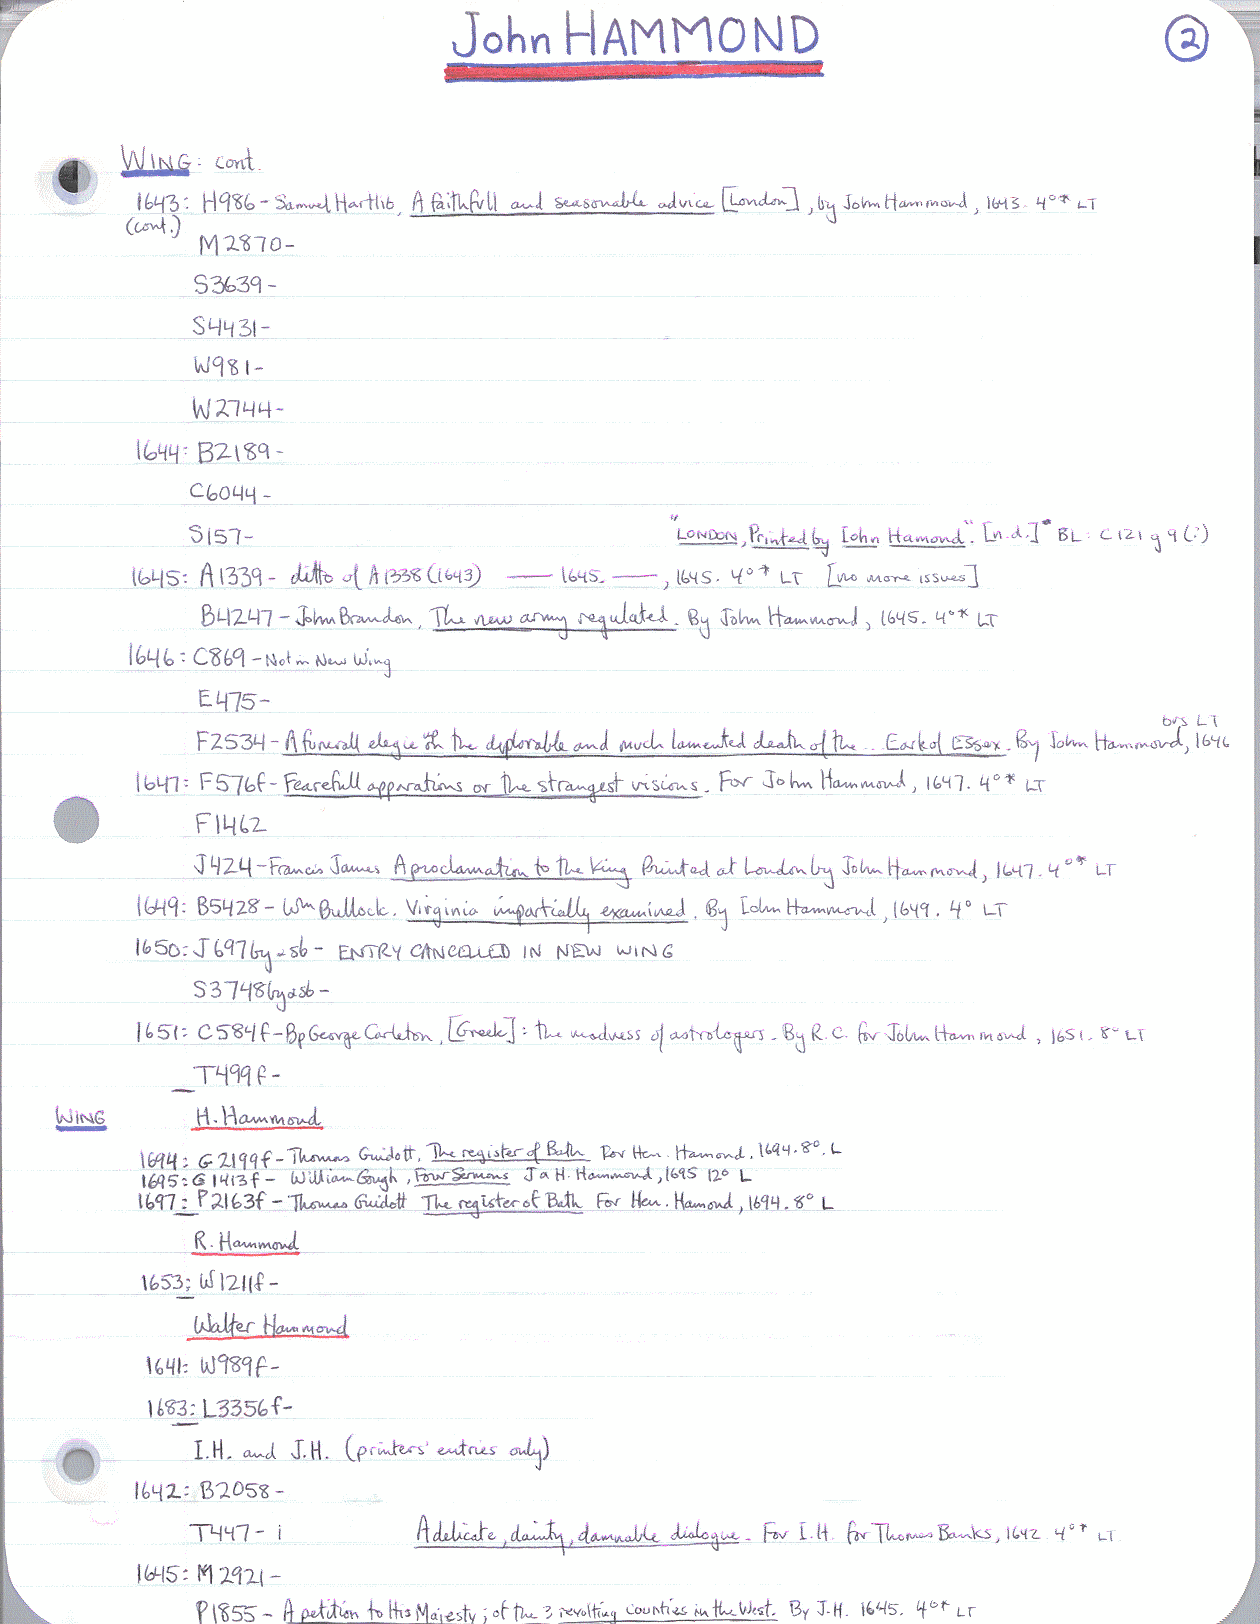 John HAMMOND
2
WING: cont.
1643: H986- Samuel Hartlib, A faithfull and seasonable advice [London], by John Hammond, 1643. 4º* LT
(cont.)
M2870-
S3639-
S4431-
W981-
W2744-
1644: B2189-
C6044-
S157- "LONDON, Printed by Iohn Hamond". [n.d.] BL: C121 g 9(?)
1645: A1339- ditto of A1338 (1643) —— 1645. ——, 1645. 4º* LT [no more issues]
B4247- John Brandon, The new army regulated. By John Hammond, 1645. 4º* LT
1646: C869- Not in New Wing
E475-
brs LT
F2534- A funerall elegie the deplorable and much lamented death of the... Earl of Essex. By John Hammond, 1646
1647: F576f- Fearefull apparations or the strangest visions. For John Hammond, 1647. 4º* LT
F1462
J424- Francis James A proclamation to the King Printed at London by John Hammond, 1647. 4º* LT
1649: B5428- Wm Bullock. Virginia impartially examined. By Iohn Hammond, 1649. 4º LT
1650: J697 - ENTRY CANCELLED IN NEW WING
S3748 -
1651: C584f- Bp George Carleton, [Greek]: the madness of astrologers. By R.C. for John Hammond, 1651. 8º LT
T499f-
WING H. Hammond
1694: G2199f- Thomas Guidott, The register of Bath For Hen. Hamond, 1694. 8º. L
1695: G1413f- William Gough, Four Sermons H. Hammond, 1695 12º L
1697: P2163f- Thomas Guidott The register of Bath For Hen. Hamond, 1694. 8º L
R. Hammond
1653: W1211f-
Walter Hammond
1641: W989f-
1683: L3356f-
I.H. and J.H. (printers' entries only)
1642: B2058-
T447- i A delicate, dainty, damnable dialogue. For I.H. for Thomas Banks, 1642. 4º* LT
1645: M2921-
P1855- A petition to His Majesty; of the 3 revolting counties in the West. By J.H. 1645. 4º* LT